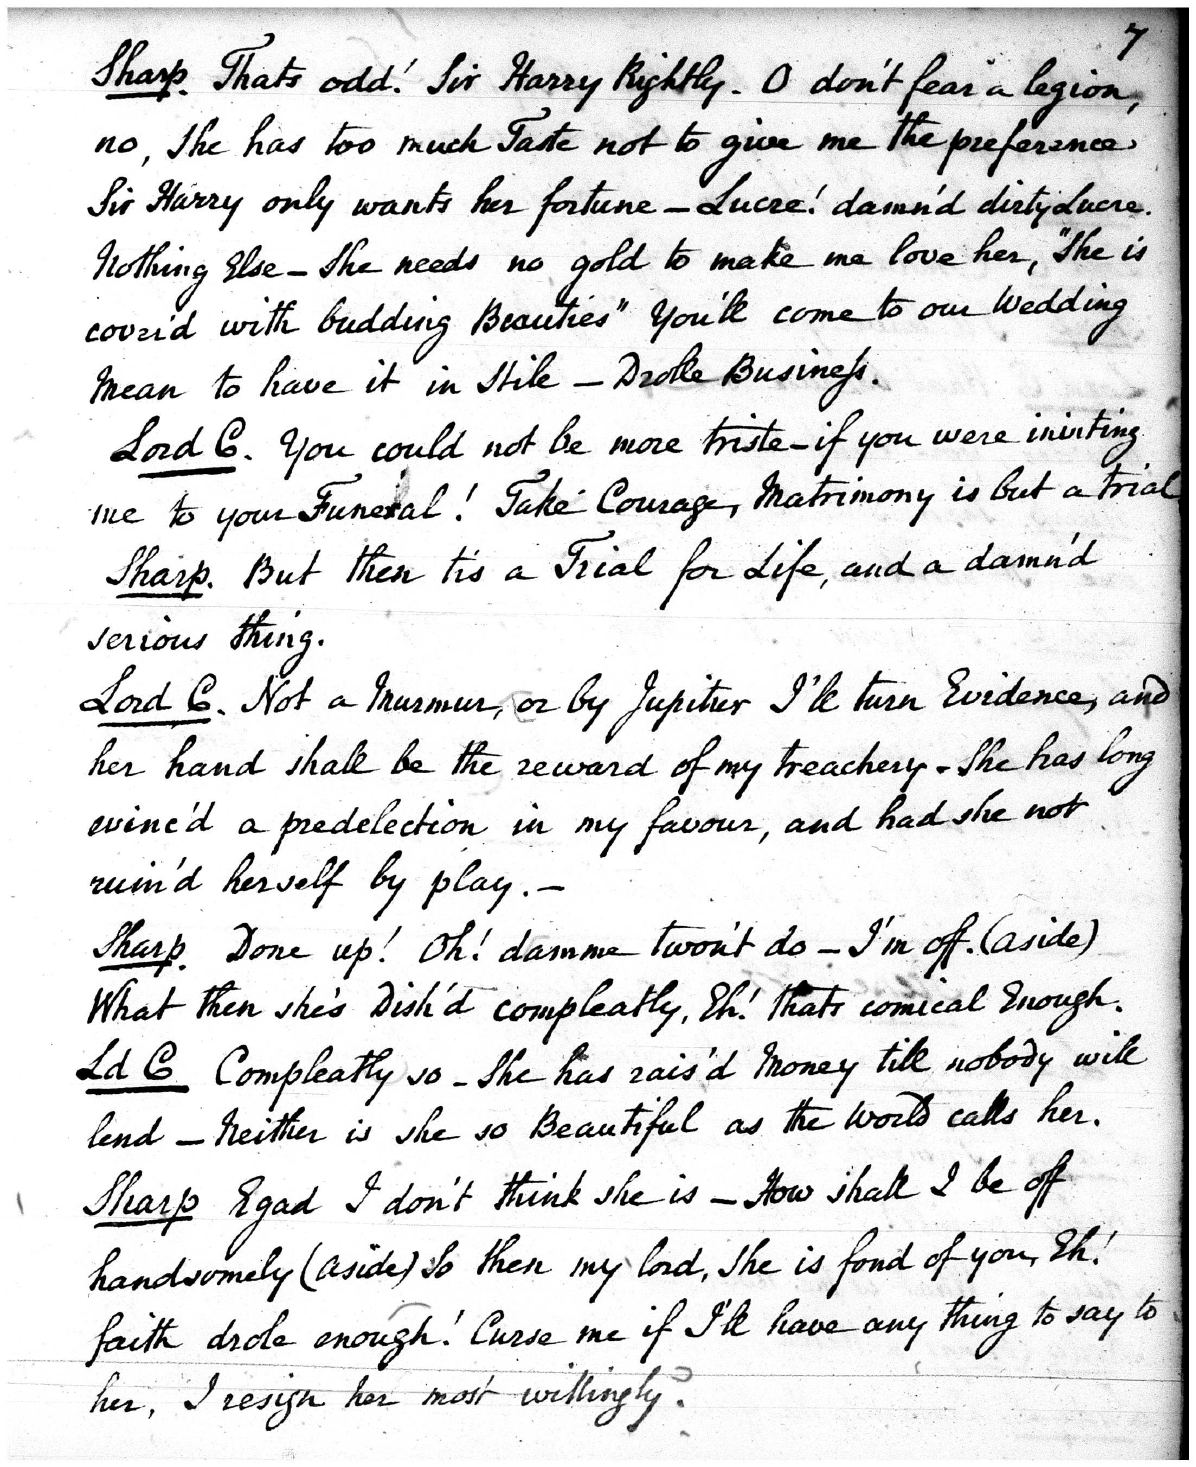 7
Sharp. Thats odd! Sir Harry Rightly. O don't fear a legion,
no, She has too much Taste not to give me the preference.
Sir Harry only wants her fortune – Lucre! damn'd dirty Lucre.
Nothing Else – She needs no gold to make me love her, "She is
cover'd with budding Beauties" You'll come to our Wedding
Mean to have it in Stile – Drolle Business.
Lord C. You could not be more triste – if you were inviting
me to your Funeral! Take Courage, Matrimony is but a trial
Sharp. But then tis a Trial for Life, and a damn'd
serious thing.
Lord C. Not a Murmur, or by Jupiter I'll turn Evidence, and
her hand shall be the reward of my treachery – She has long
evinc'd a predelection in my favour, and had she not
ruin'd herself by play. –
Sharp. Done up! Oh! damme twon't do – I'm off. (aside)
What then she's Dish'd compleatly, Eh! thats comical Enough.
Ld C Compleatly so – She has rais'd Money till nobody will
lend – Neither is she so Beautiful as the World calls her.
Sharp Egad I don't think she is – How shall I be off
handsomely (aside) So then my lord, She is fond of you, Eh!
faith drole enough! Curse me if I'll have any thing to say to
her, I resign her most willingly.